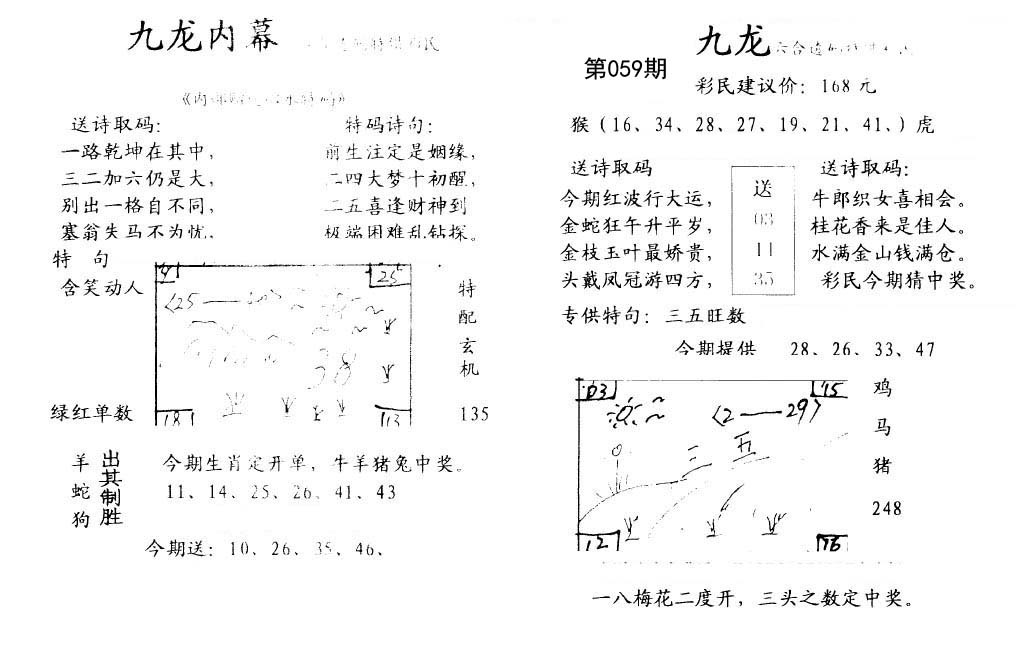 九龙内幕
送诗取码：
一路乾坤在其中，
三二加六仍是大，
别出一格自不同，
塞翁失马不为忧。
特码诗句：
前生注定是姻缘，
二四大梦十初醒，
二五喜逢财神到
极端困难乱钻探。
特 句
含笑动人
绿红单数
9
25
〈25——
38
18
13
特
配
玄
机
135
羊
蛇
狗
出其制胜
今期生肖定开单，牛羊猪兔中奖。
11、14、25、26、41、43
今期送：10、26、35、46、
九龙
第059期
彩民建议价：168 元
猴（16、34、28、27、19、21、41、）虎
送诗取码
今期红波行大运，
金蛇狂午升平岁，
金枝玉叶最娇贵，
头戴凤冠游四方，
送
03
11
35
送诗取码：
牛郎织女喜相会。
桂花香来是佳人。
水满金山钱满仓。
彩民今期猜中奖。
专供特句：三五旺数
今期提供 28、26、33、47
03
15
〈2——29〉
三 五
12
16
鸡
马
猪
248
一八梅花二度开，三头之数定中奖。